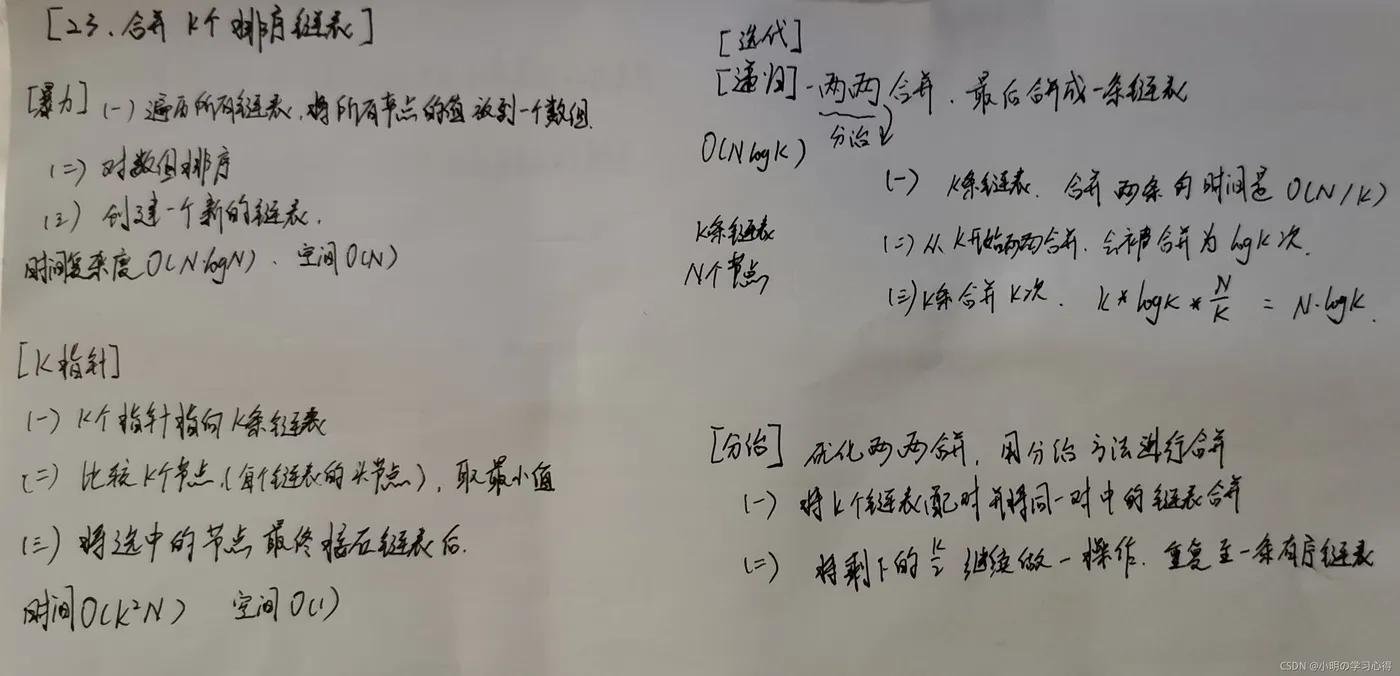 [23、合并 K个排序链表]
[暴力] (一) 遍历所有链表，将所有节点的值放到一个数组.
(二) 对数组排序
(三) 创建一个新的链表.
时间复杂度 O(N·logN)、空间O(N)
[K指针]
(一) K个指针指向K条链表
(二) 比较K个节点(每个链表的头节点)，取最小值
(三) 将选中的节点最终接在链表后.
时间O(K²N) 空间O(1)
[迭代]
[递归]-两两合并、最后合并成一条链表
分治
O(NlogK)
K条链表
N个节点
(一) K条链表. 合并两条的时间是 O(N/K)
(二) 从K开始两两合并. 会被合并为 logK次.
(三) K条合并K次. K*logK*N/K = N·logK.
[分治] 优化两两合并，用分治方法进行合并
(一) 将K个链表配对并将同一对中的链表合并
(二) 将剩下的 K/2 继续做一操作. 重复至一条有序链表
CSDN @小明の学习心得